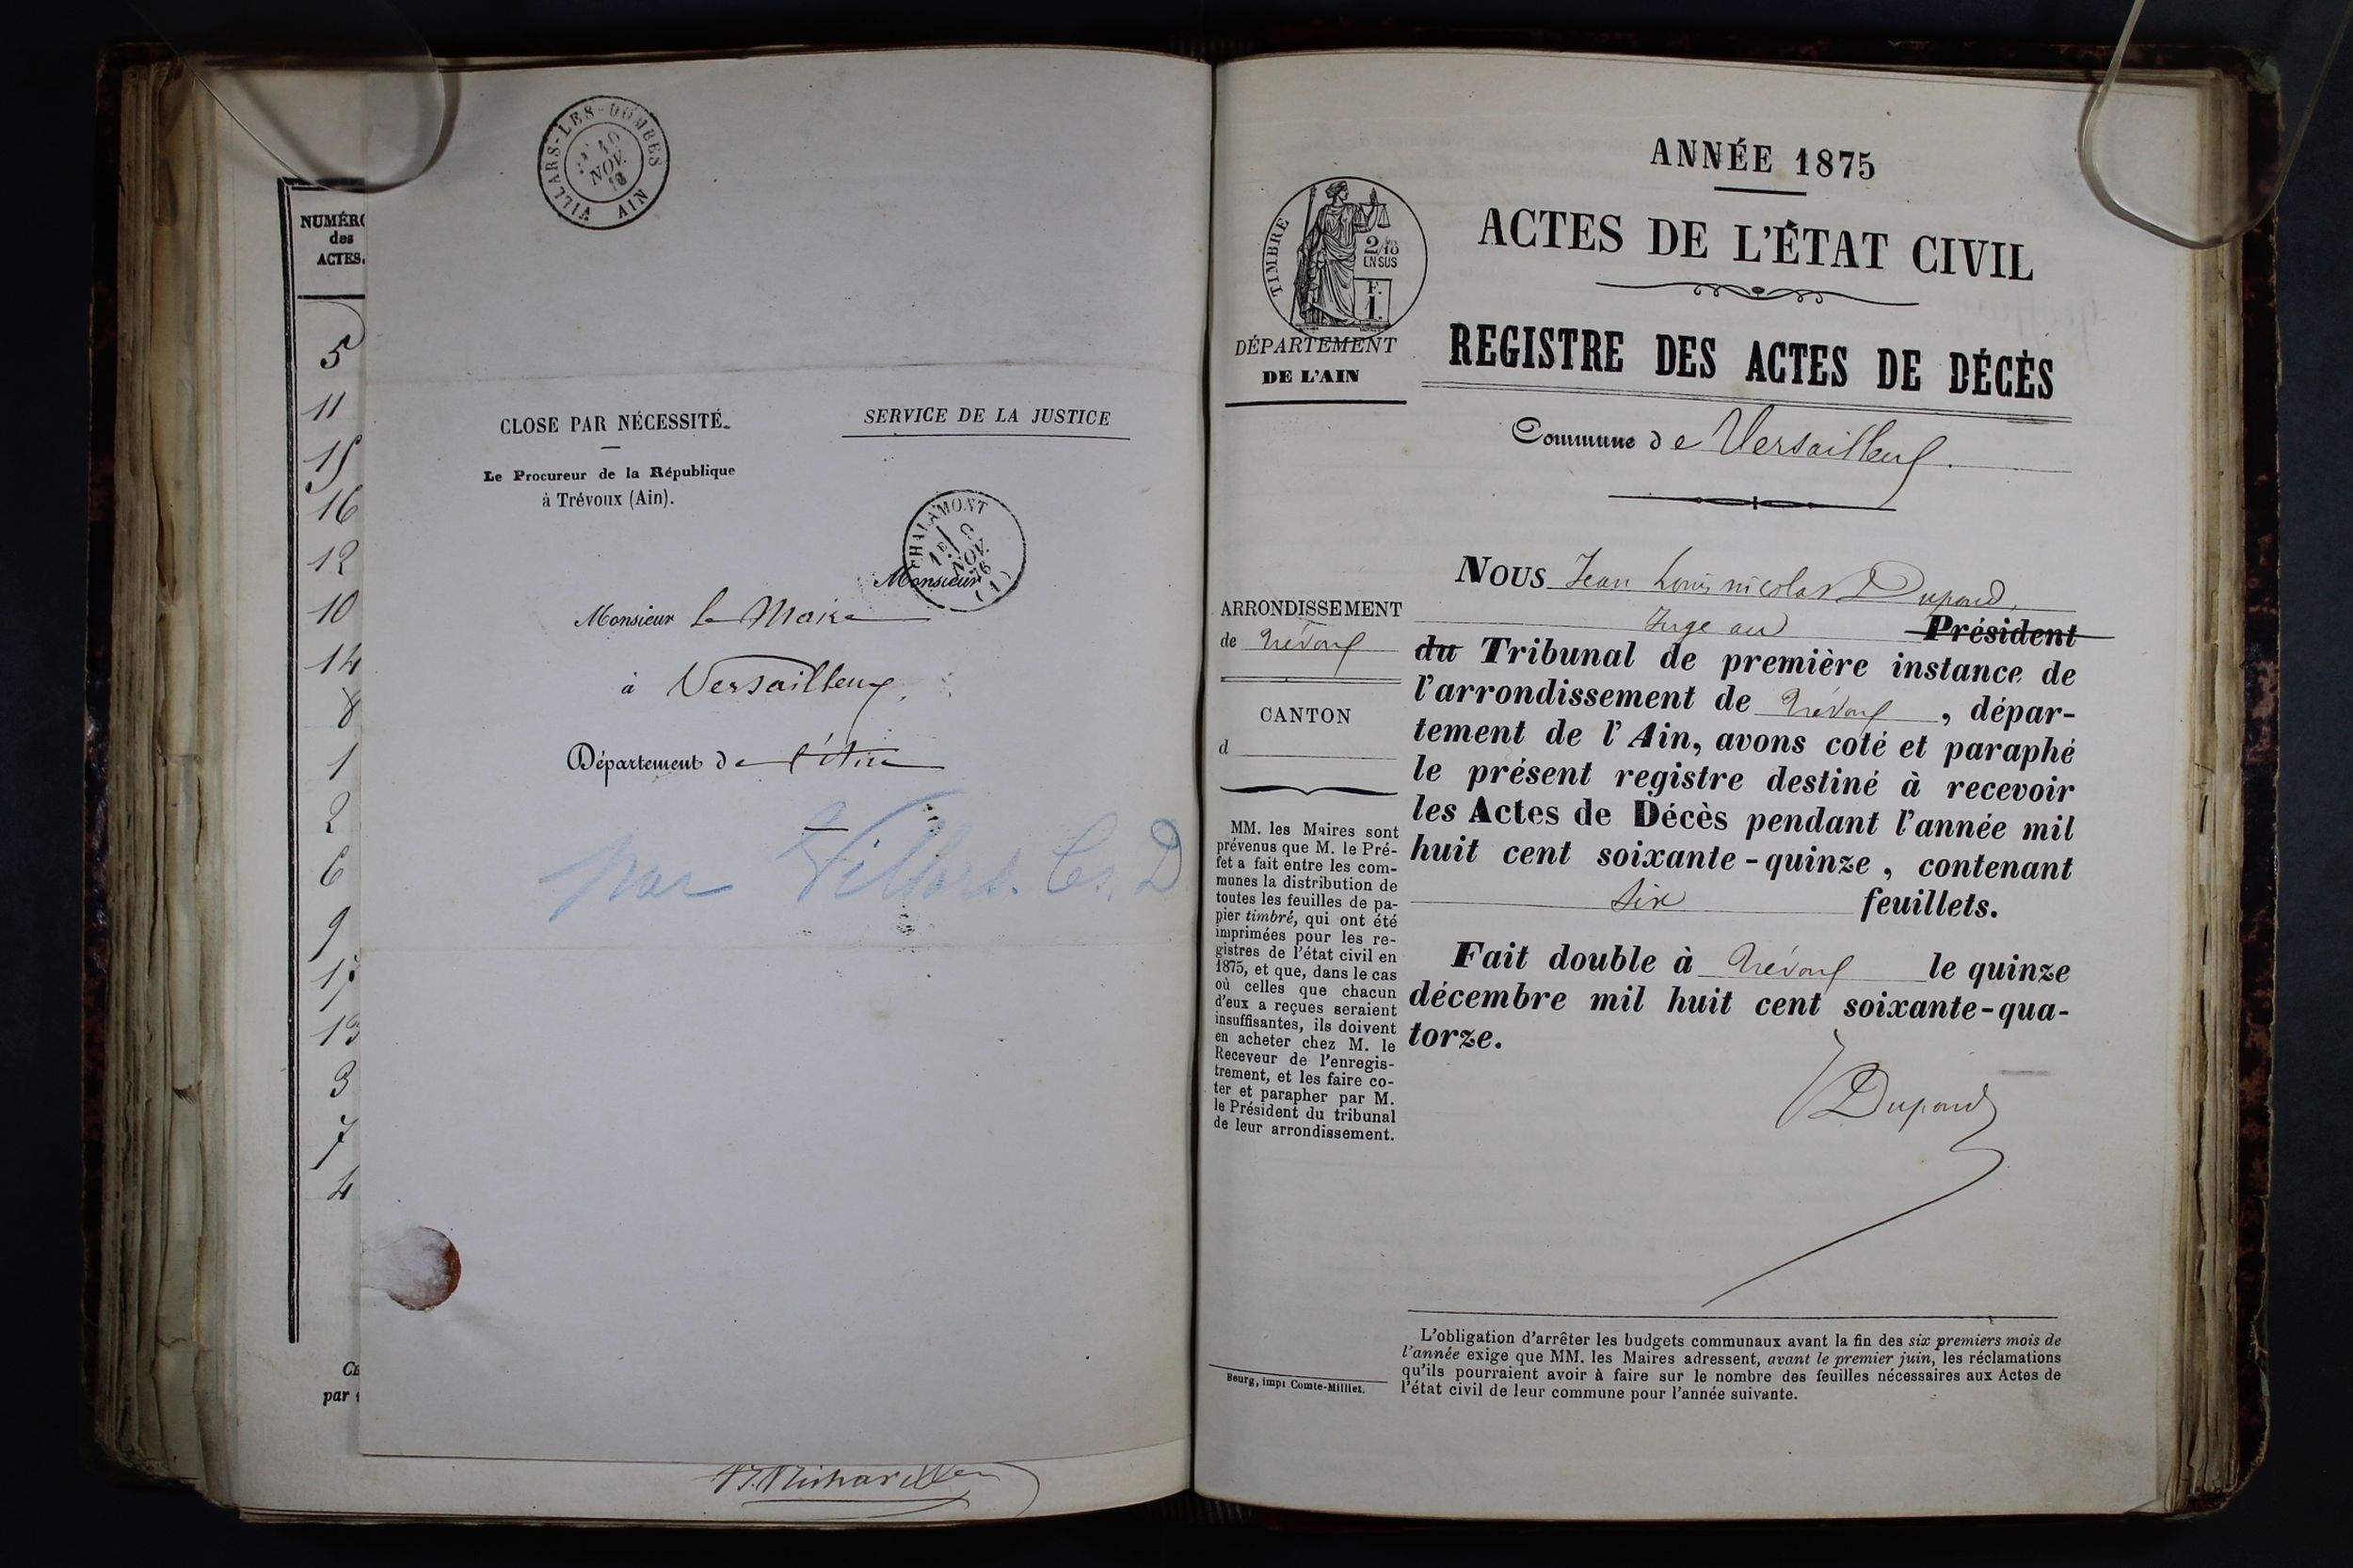 NUMÉRO
des
ACTES.
5
11
15
16
12
10
14
8
1
2
6
9
17
13
3
7
4
par
VILLARS-LES-DOMBES
NOV.
AIN
CLOSE PAR NÉCESSITÉ.
SERVICE DE LA JUSTICE
Le Procureur de la République
à Trévoux (Ain).
CHALAMONT
1E
NOV.
76
(1)
Monsieur
Monsieur le Maire
à Versailleux
Département de l'Ain
par Villars. les. D
ANNÉE 1875
ACTES DE L'ÉTAT CIVIL
TIMBRE
2/10
EN SUS
F.
1.
DÉPARTEMENT
DE L'AIN
REGISTRE DES ACTES DE DÉCÈS
Commune de Versailleux.
ARRONDISSEMENT
de Trévoux
CANTON
d
MM. les Maires sont
prévenus que M. le Pré-
fet a fait entre les com-
munes la distribution de
toutes les feuilles de pa-
pier timbré, qui ont été
imprimées pour les re-
gistres de l'état civil en
1875, et que, dans le cas
où celles que chacun
d'eux a reçues seraient
insuffisantes, ils doivent
en acheter chez M. le
Receveur de l'enregis-
trement, et les faire co-
ter et parapher par M.
le Président du tribunal
de leur arrondissement.
NOUS Jean Louis Nicolas Dupond,
Juge au Président
du Tribunal de première instance de
l'arrondissement de Trévoux, dépar-
tement de l'Ain, avons coté et paraphé
le présent registre destiné à recevoir
les Actes de Décès pendant l'année mil
huit cent soixante-quinze, contenant
six feuillets.
Fait double à Trévoux le quinze
décembre mil huit cent soixante-qua-
torze.
Dupond
L'obligation d'arrêter les budgets communaux avant la fin des six premiers mois de
l'année exige que MM. les Maires adressent, avant le premier juin, les réclamations
qu'ils pourraient avoir à faire sur le nombre des feuilles nécessaires aux Actes de
l'état civil de leur commune pour l'année suivante.
Bourg, impr Comte-Milliet.